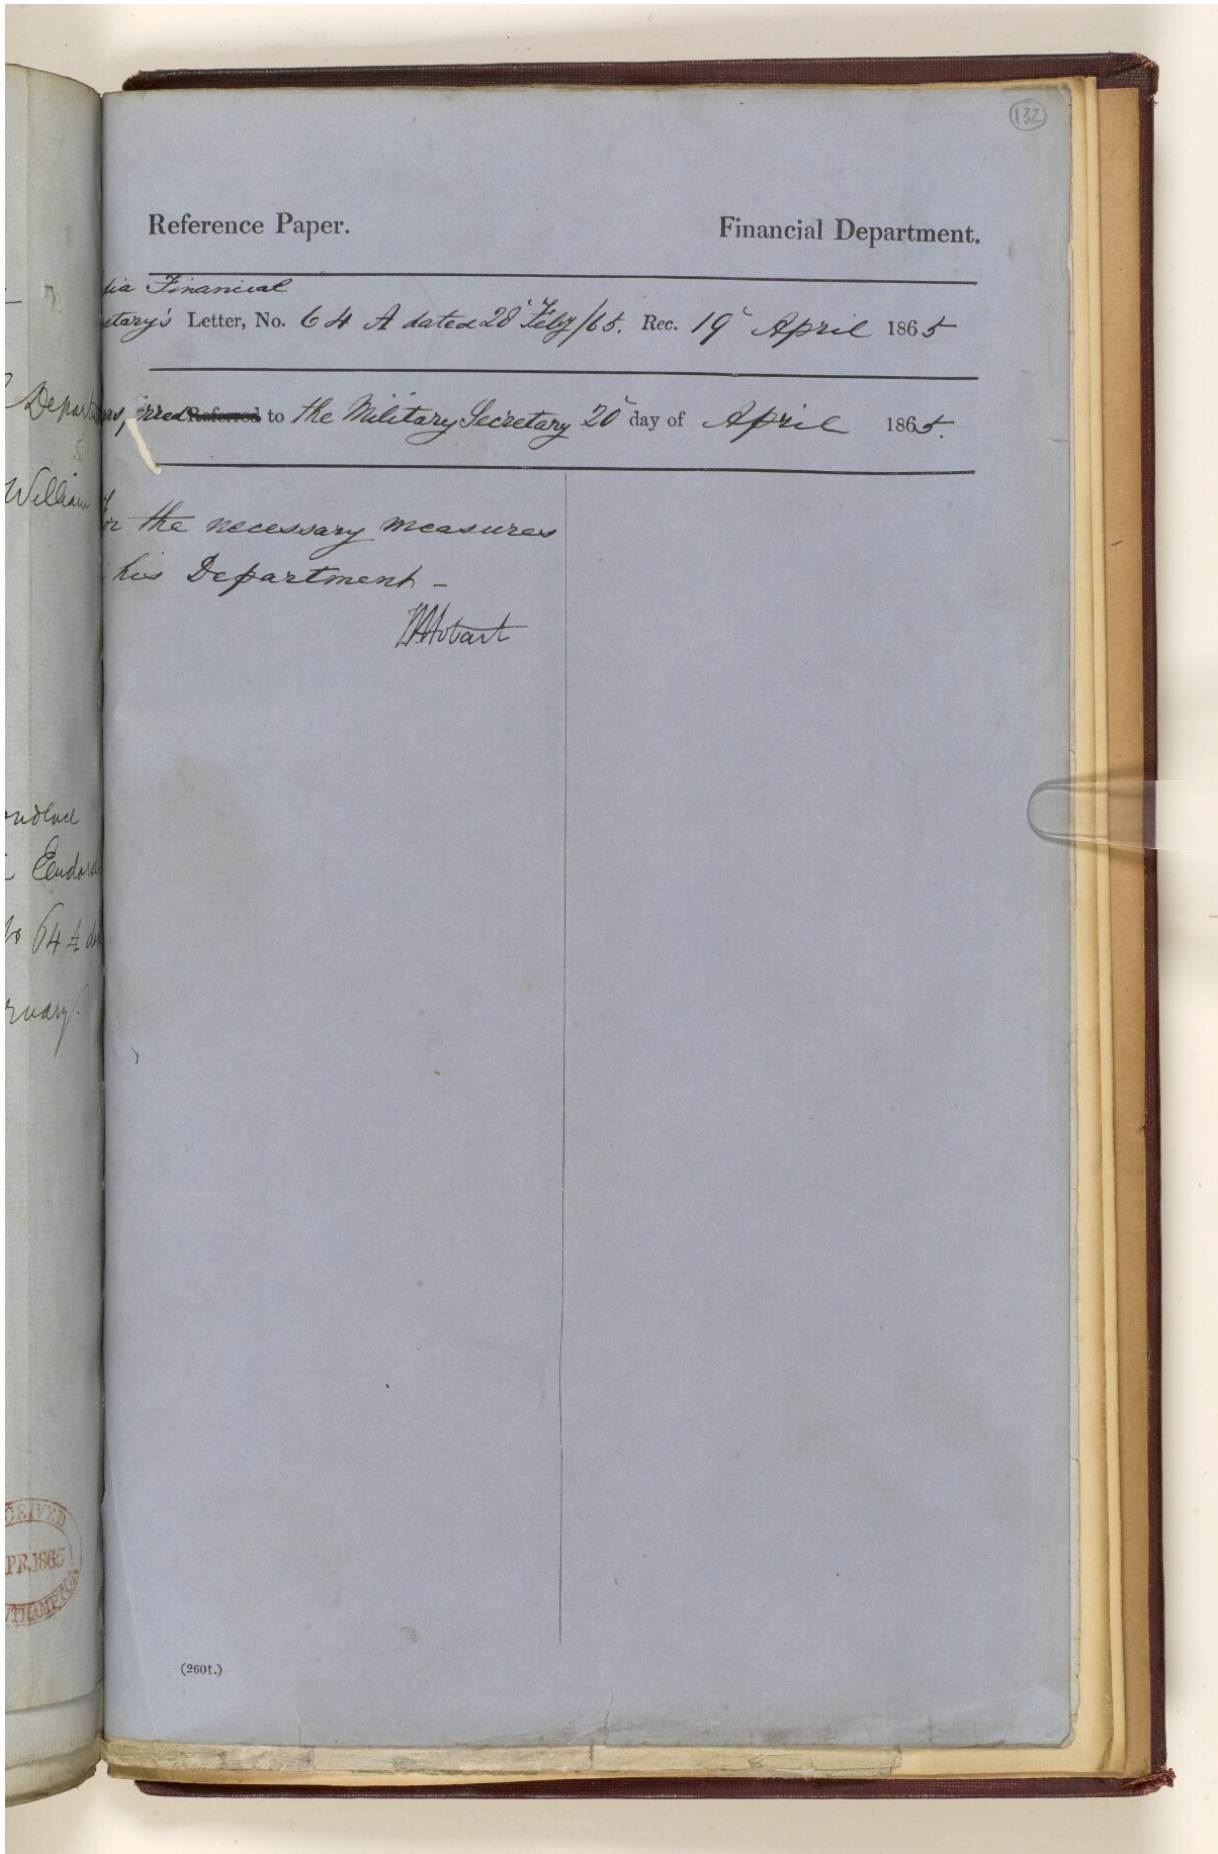 132
Reference Paper. Financial Department.
dia Financial
etary's Letter, No. 64 A dated 28 Feby/65. Rec. 19 April 1865
rred Referred to the Military Secretary 20 day of April 1865.
or the necessary measures
his Department -
Hobart
Depart
William
Endorse
64 A
ruary.
CEIVED
PR.1865
UTHAMPTON
(2601.)